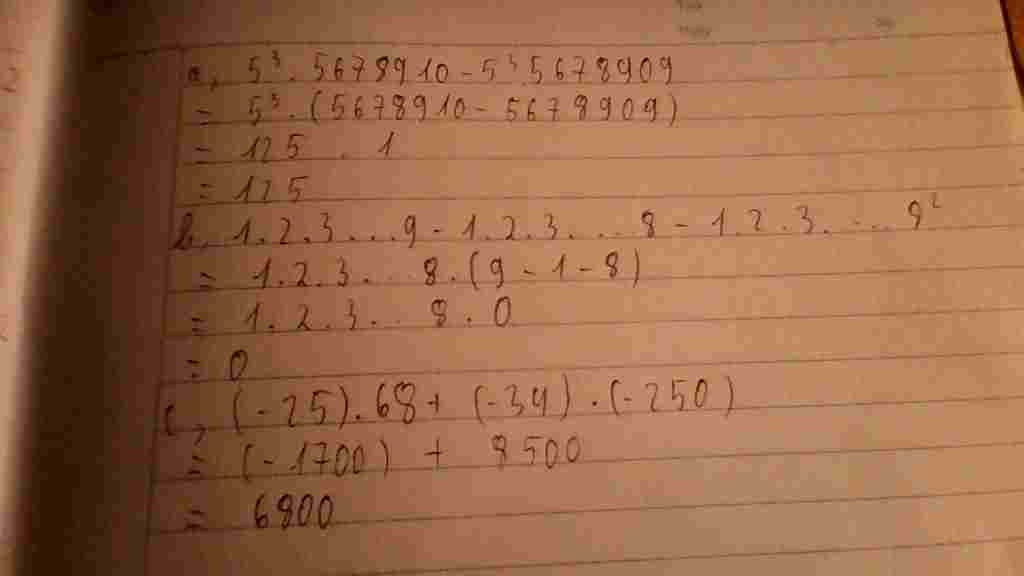 a, 5³. 5678910 - 5³ 5678909
= 5³. (5678910 - 5678909)
= 125 . 1
= 125
b, 1.2.3...9 - 1.2.3...8 - 1.2.3....8²
= 1.2.3...8.(9-1-8)
= 1.2.3...8.0
= 0
c, (-25).68+ (-34).(-250)
= (-1700) + 8500
= 6800